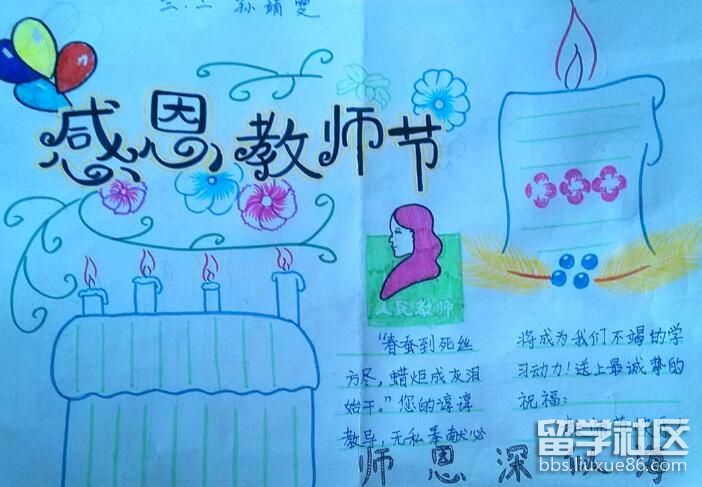 三.二 孙靖雯
感恩教师节
人民教师
“春蚕到死丝
方尽，蜡炬成灰泪
始干。”您的谆谆
教导，无私奉献必
将成为我们不竭的学
习动力！送上最诚挚的
祝福：
师恩深似海
留学社区
bbs.liuxue86.com